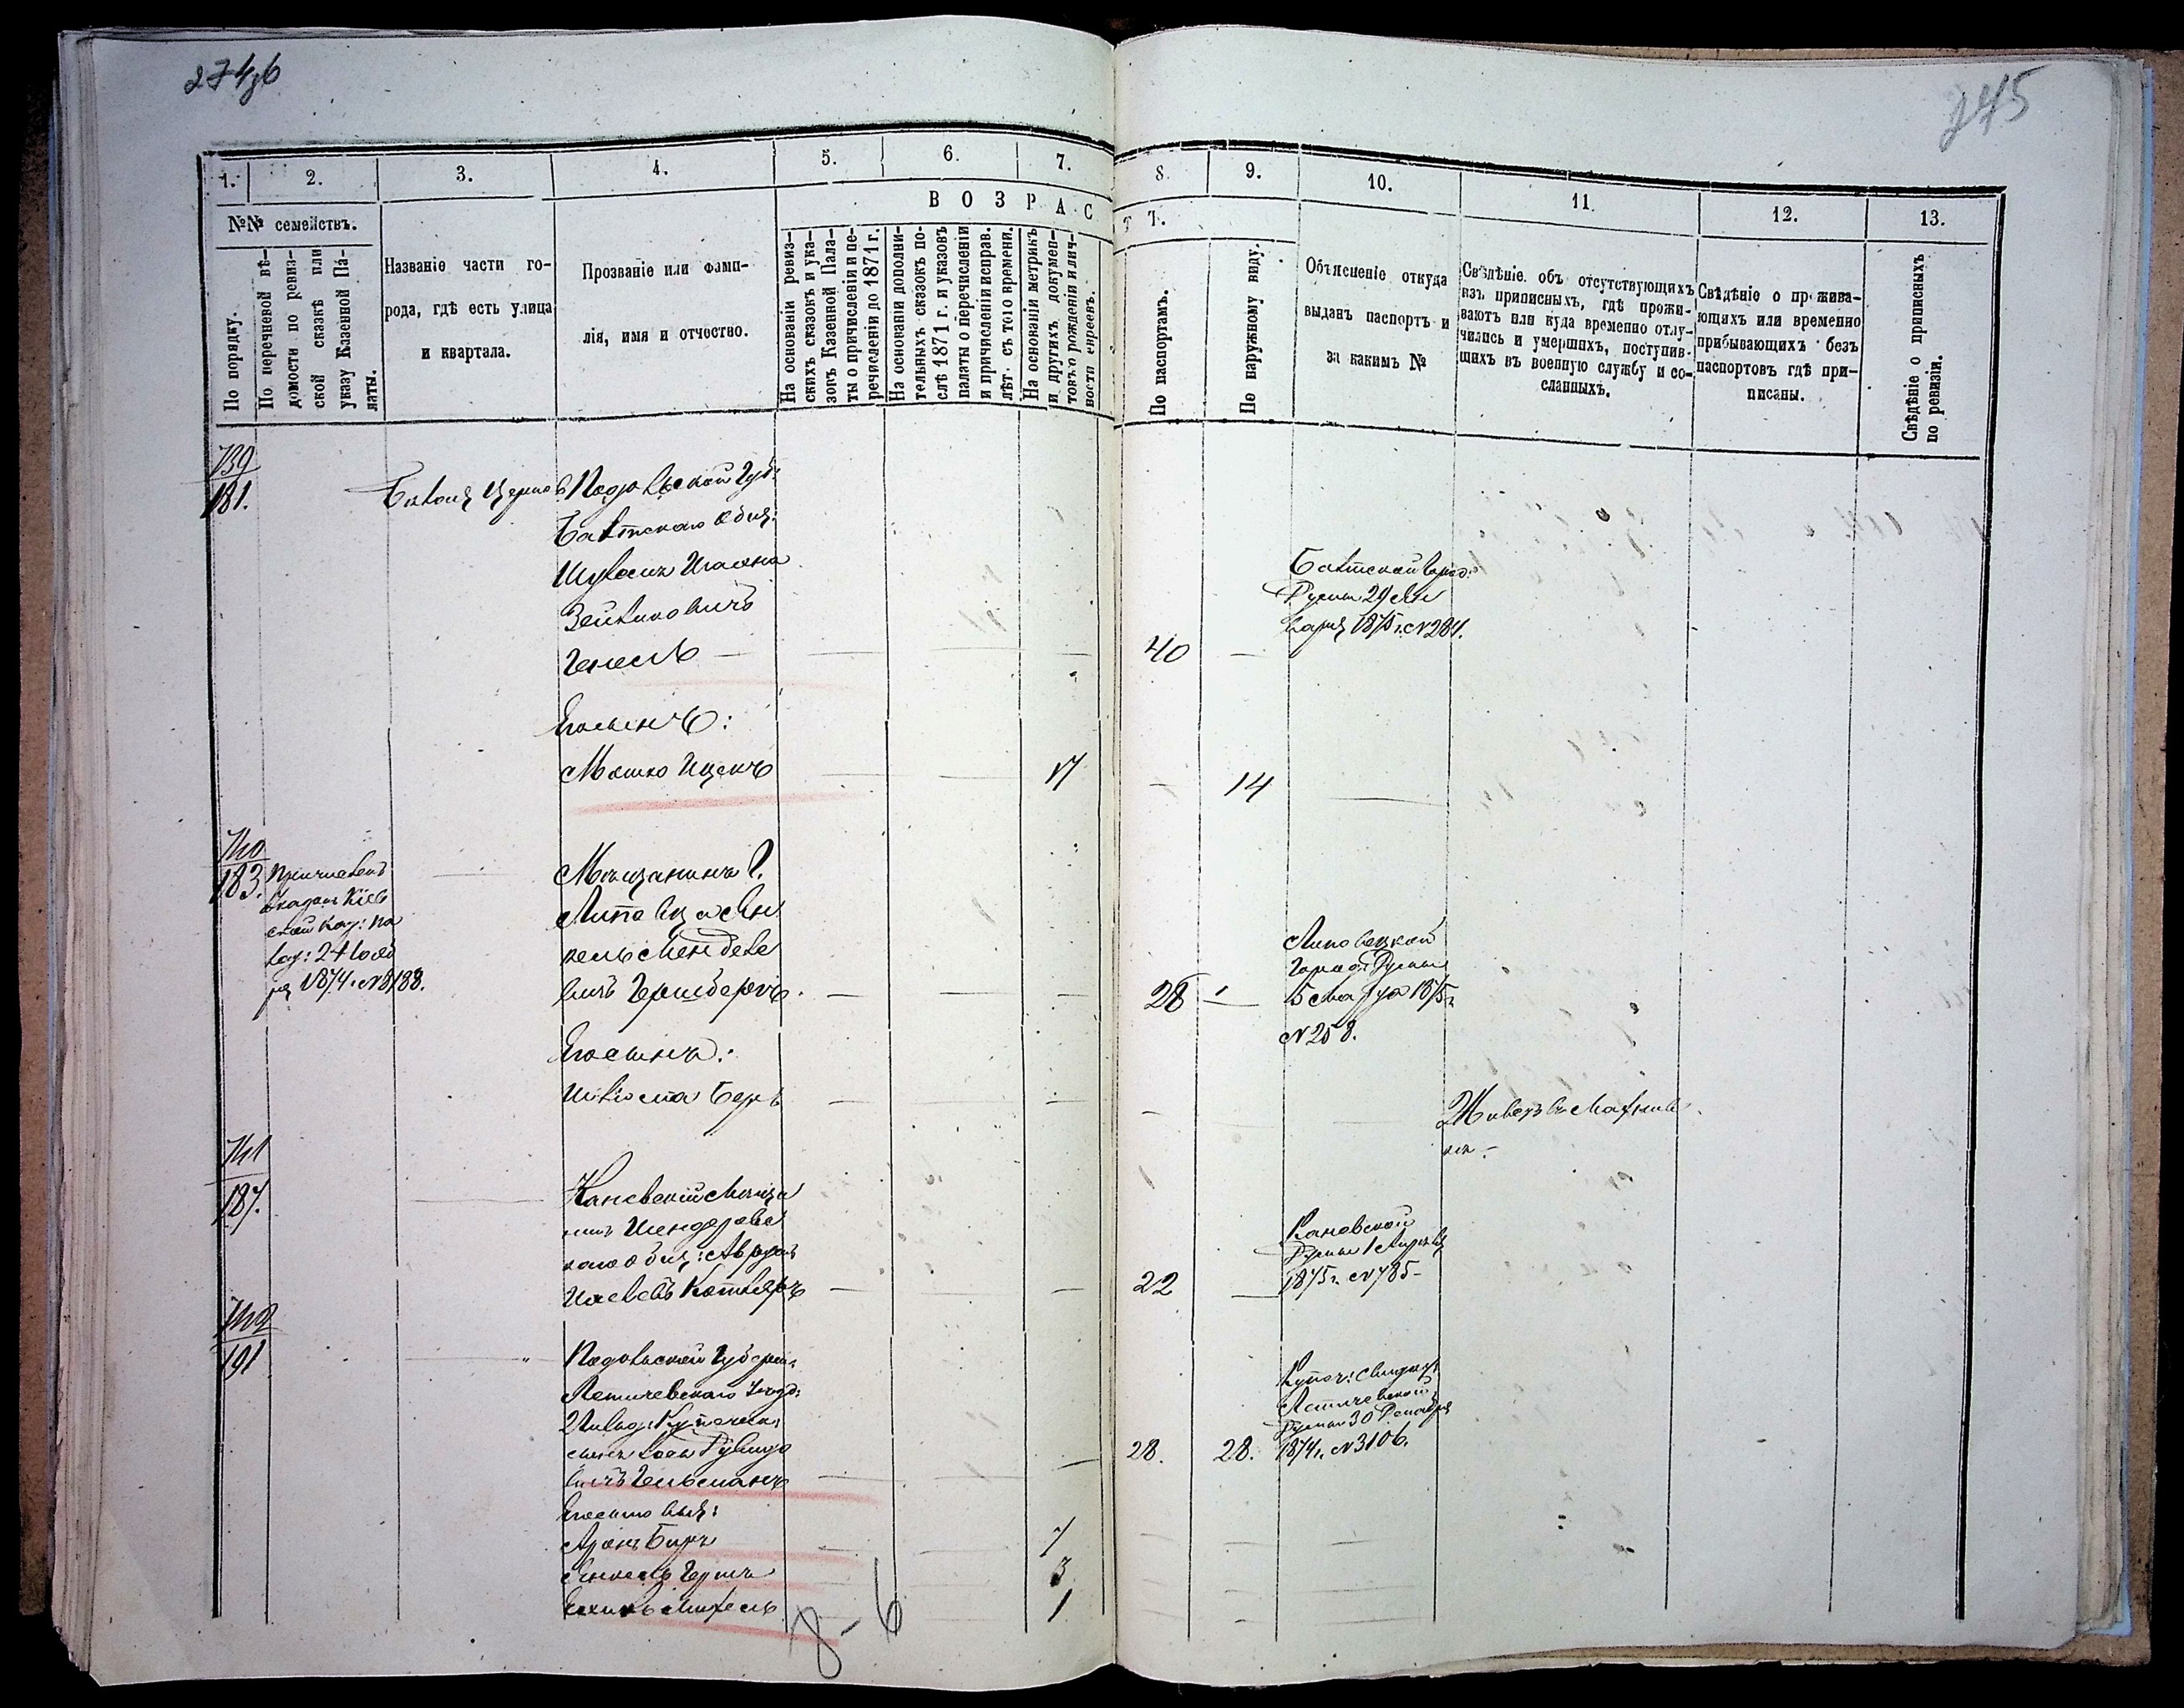 274об
275
1.
2.
3.
4.
5.
6.
7.
8.
9.
10.
11.
12.
13.
№№ семействъ.
По порядку.
По перечневой вѣ-
домости по ревиз-
ской сказкѣ или
указу Казенной Па-
латы.
Названіе части го-
рода, гдѣ есть улица
и квартала.
Прозваніе или фами-
лія, имя и отчество.
ВОЗРАС
ТЪ.
На основаніи ревиз-
скихъ сказокъ и ука-
зокъ Казенной Пала-
ты о причисленіи и пе-
речисленіи до 1871 г.
На основаніи дополни-
тельныхъ сказокъ по-
слѣ 1871 г. и указовъ
палаты о перечисленіи
и причисленіи исправ.
лѣт. съ того времени.
На основаніи метрикъ
и другихъ докумен-
товъ о рожденіи и лич-
ности евреевъ.
По паспортамъ.
По наружному виду.
Объясненіе откуда
выданъ паспортъ и
за какимъ №
Свѣдѣніе объ отсутствующихъ
изъ приписныхъ, гдѣ прожи-
ваютъ или куда временно отлу-
чились и умершихъ, поступив-
шихъ въ военную службу и со-
сланныхъ.
Свѣдѣніе о прожива-
ющихъ или временно
прибывающихъ безъ
паспортовъ гдѣ при-
писаны.
Свѣдѣніе о приписныхъ
по ревизіи.
739
181.
Бѣлая Церковь
Подольской Губ:
Балтскаго Общ:
Зейликовичъ
40
Балтской Город:
Думы 29 Ян
варя 1875 г. № 284.
Его сынъ:
Мошко Ицекъ
14
740
183.
Причисленъ
указомъ Кіев
ской Каз: Па
лат: 24 Нояб
ря 1874 г. № 8188.
Мѣщанинъ г.
Липовца Ян
кель Менделе
вичъ Гершбергъ
28
Липовецкой
Город: Думы
5 Марта 1875 г.
№ 258.
Его сынъ:
741
187.
Каневскій Мѣща
нинъ
каго общ: Аврумъ
Котляръ
22
Каневской
Думы 1 Апрѣля
1875 г. № 785
742
191
Подольской Губерн:
Летичевскаго Уѣзд:
Купеческ:
сынъ
вичъ Гельманъ
28.
28.
Купеч:
Летичевской
Думы 30 Декабря
1874 г. № 3106.
Его сыновья:
Аронъ Беръ
7
Янкель Гершъ
3
1
8-6